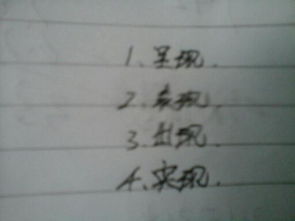 1、呈现.
2、表现.
3、出现.
4、实现.